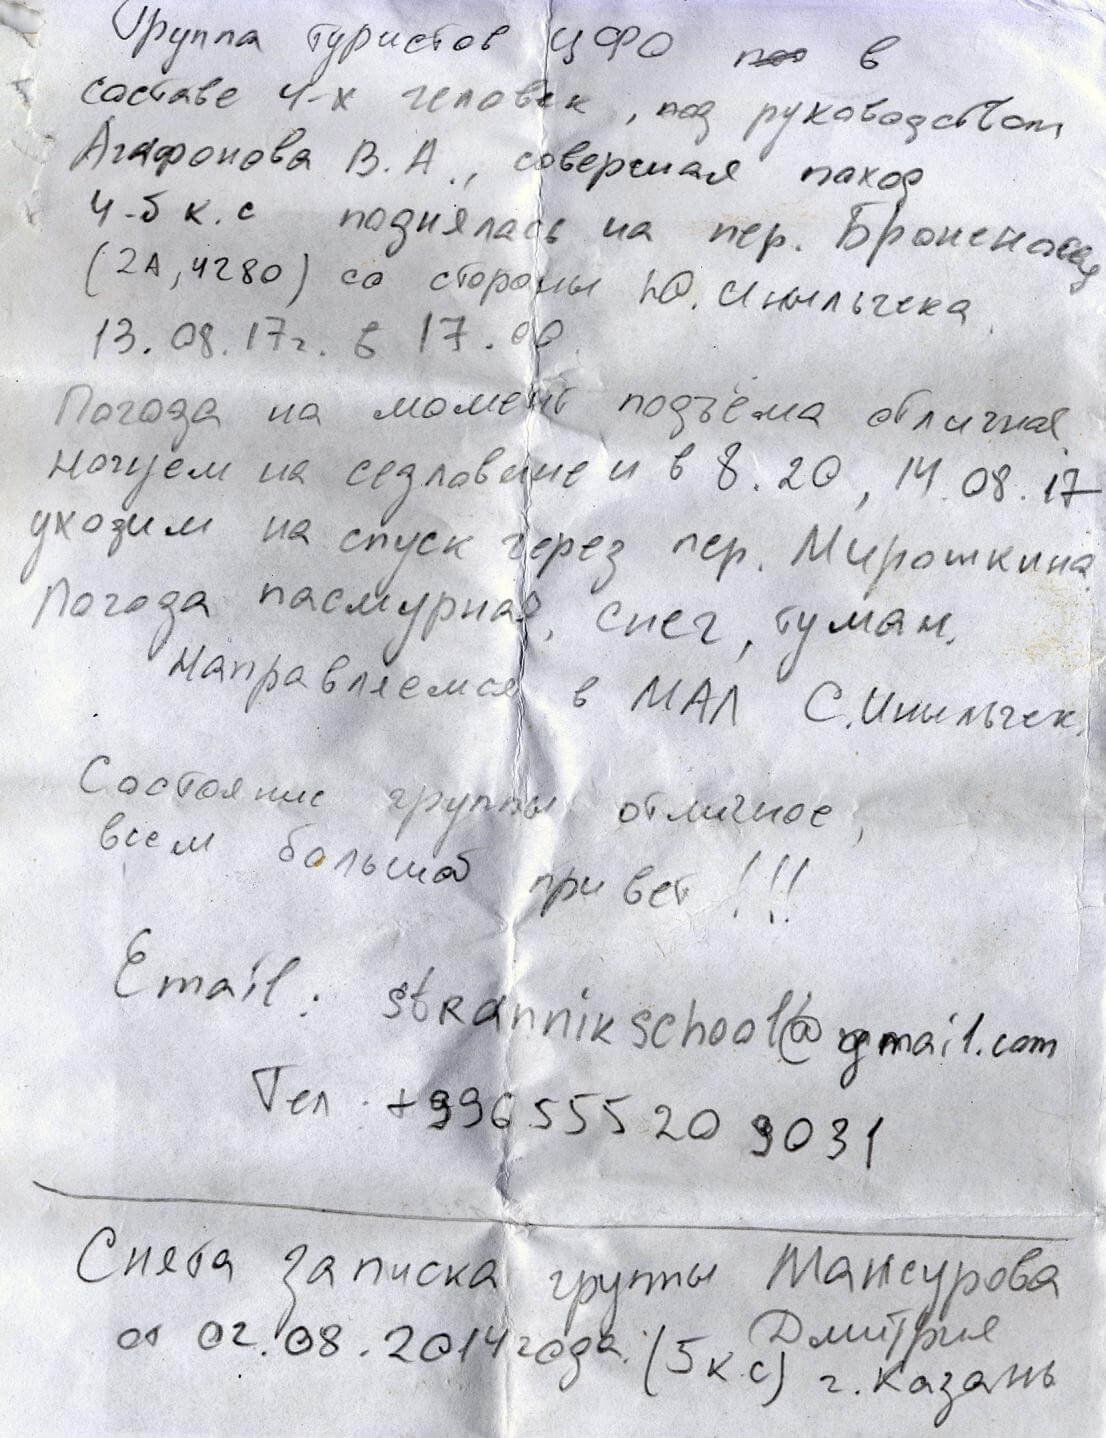 Группа туристов ЦФО в
составе 4-х человек, под руководством
Агафонова В.А., совершая поход
4-5 к.с поднялась на пер. Броненосец
(2А, 4280) со стороны Ю. Иныльчека
13.08.17г. в 17.00
Погода на момент подъёма отличная
ночуем на седловине и в 8.20, 14.08.17
уходим на спуск через пер. Мирошкина
Погода пасмурная, снег, туман.
Направляемся в МАЛ С.Иныльчек.
Состояние группы отличное,
всем большой привет!!!
Email: strannikschool@gmail.com
Тел. +996 555 20 9031
Снята записка группы Мансурова
Дмитрия
от 02.08.2014 года. (5 к.с) г. Казань